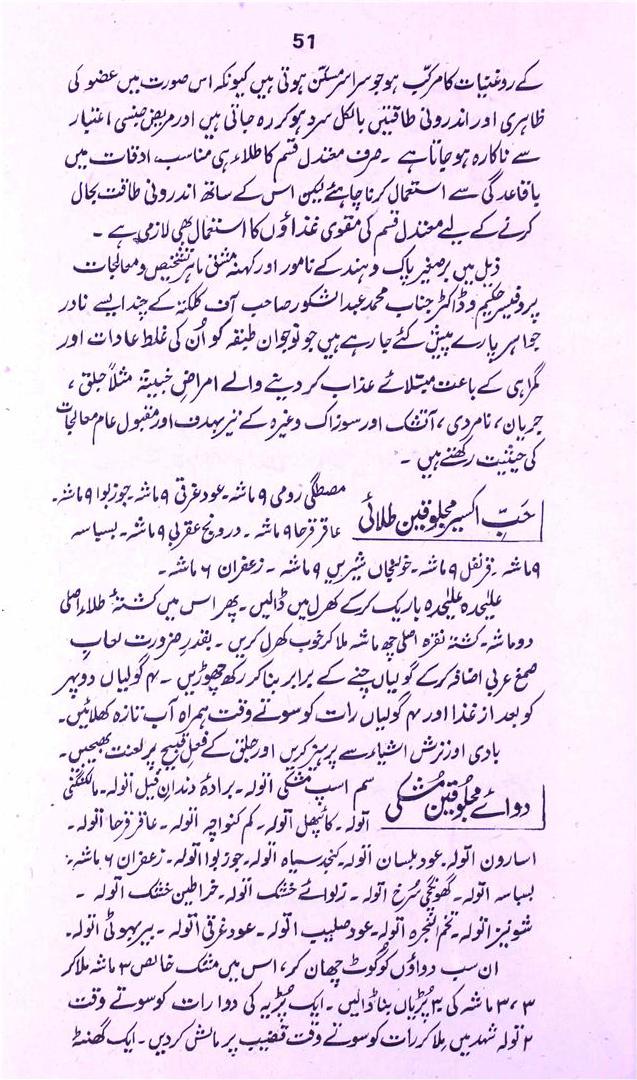 51
کے روغنیات کا مرکب ہو جو سراسر مسکن ہوتی ہیں کیونکہ اس صورت میں عضو کی
ظاہری اور اندرونی طاقتیں بالکل سرد ہو کر رہ جاتی ہیں اور مریض جنسی اعتبار
سے ناکارہ ہو جاتا ہے ۔ صرف معتدل قسم کا طلاء ہی مناسب اوقات میں
باقاعدگی سے استعمال کرنا چاہئے لیکن اس کے ساتھ اندرونی طاقت بحال
کرنے کے لیے معتدل قسم کی مقوی غذاؤں کا استعمال بھی لازمی ہے ۔
ذیل میں برصغیر پاک و ہند کے نامور اور کہنہ مشق ماہر تشخیص و معالجات
پروفیسر حکیم و ڈاکٹر جناب محمد عبدالشکور صاحب آف کلکتہ کے چند ایسے نادر
جواہر پارے پیش کئے جا رہے ہیں جو نوجوان طبقہ کو اُن کی غلط عادات اور
گمراہی کے باعث مبتلائے عذاب کر دینے والے امراض خبیثہ مثلاً جلق ،
جریان ، نامردی ، آتشک اور سوزاک وغیرہ کے تیر بہدف اور مقبول عام معالجات
کی حیثیت رکھتے ہیں ۔
حَبِّ اکسیر مجلوقین طلائی مصطگی رومی ۹ ماشہ ۔ عود غرقی ۹ ماشہ ۔ جوزبوا ۹ ماشہ ۔
عاقرقرحا ۹ ماشہ ۔ درونج عقربی ۹ ماشہ ۔ بسباسہ
۹ ماشہ ۔ قرنفل ۹ ماشہ ۔ خولنجاں شیریں ۹ ماشہ ۔ زعفران ۶ ماشہ ۔
علیٰحدہ علیٰحدہ باریک کر کے کھرل میں ڈالیں ۔ پھر اس میں کشتۂ طلاء اصلی
دو ماشہ ۔ کشتہ نقرہ اصلی چھ ماشہ ملا کر خوب کھرل کریں ۔ بقدرِ ضرورت لعابِ
صمغ عربی اضافہ کر کے گولیاں چنے کے برابر بنا کر رکھ چھوڑیں ۔ ۴ گولیاں دوپہر
کو بعد از غذا اور ۴ گولیاں رات کو سوتے وقت ہمراہ آب تازہ کھلائیں ۔
بادی اور ترش اشیاء سے پرہیز کریں اور جلق کے فعلِ قبیح پر لعنت بھیجیں ۔
دوائے مجلوقین مُشکی سم اسپ مشکی ا تولہ ۔ برادۂ دندان فیل ا تولہ ۔ مالکنگنی
ا تولہ ۔ کائپھل ا تولہ ۔ کم کنواچہ ا تولہ ۔ عاقرقرحا ا تولہ ۔
اسارون ا تولہ ۔ عود بلسان ا تولہ ۔ کنجد سیاہ ا تولہ ۔ جوزبوا ا تولہ ۔ زعفران ۶ ماشہ ۔
بسباسہ ا تولہ ۔ گھونگچی سُرخ ا تولہ ۔ زلوائے خشک ا تولہ ۔ خراطین خشک ا تولہ ۔
شونیز ا تولہ ۔ تخم انجرہ ا تولہ ۔ عود صلیب ا تولہ ۔ عود غرقی ا تولہ ۔ بیربہوٹی ا تولہ ۔
ان سب دواؤں کو کوٹ چھان کر ، اس میں مشک خالص ۳ ماشہ ملا کر
۳ ، ۳ ماشہ کی پڑیاں بنا ڈالیں ۔ ایک پُڑیہ کی دوا رات کو سوتے وقت
۲ تولہ شہد میں ملا کر رات کو سوتے وقت قضیب پر مالش کر دیں ۔ ایک گھنٹہ